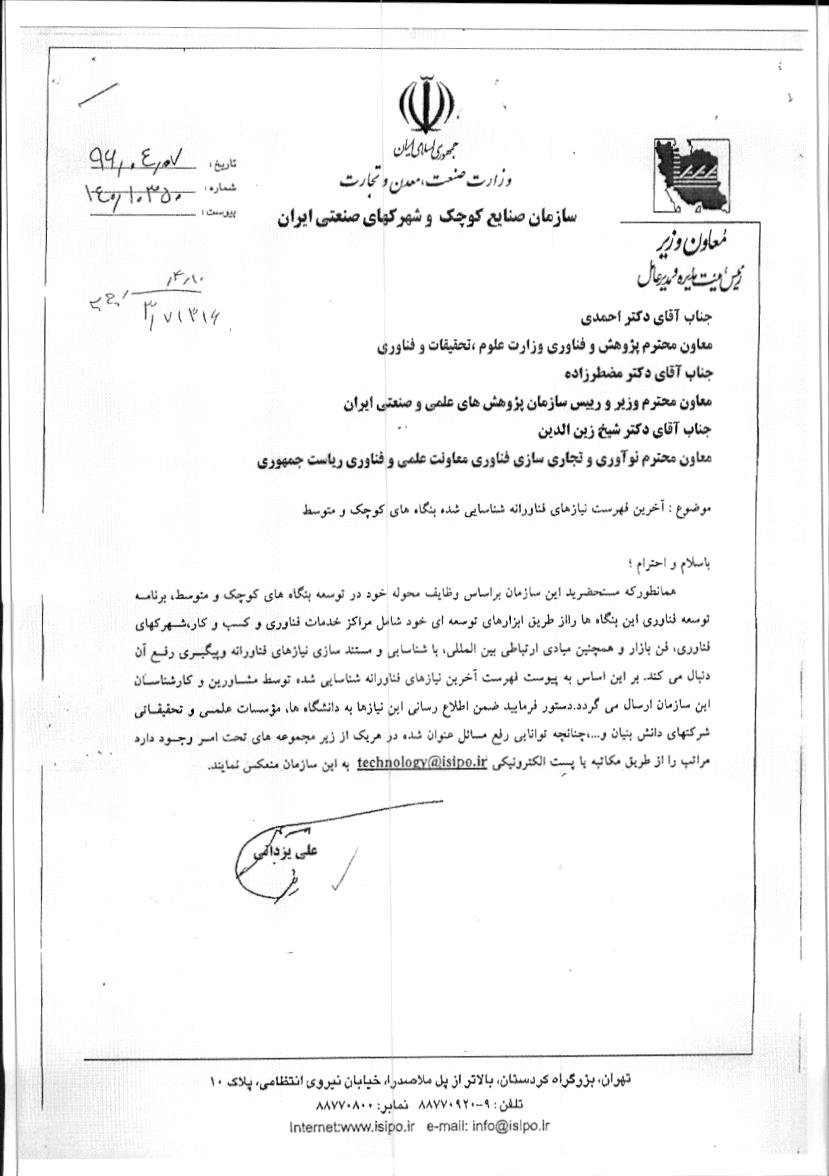 جمهوری اسلامی ایران
وزارت صنعت، معدن و تجارت
سازمان صنایع کوچک و شهرکهای صنعتی ایران
تاریخ: ۹۶,۰۴,۰۷
شماره: ۱۴۰۱۰۳۵۰
پیوست:
معاون وزیر
رئیس هیئت مدیره و مدیرعامل
جناب آقای دکتر احمدی
معاون محترم پژوهش و فناوری وزارت علوم ،تحقیقات و فناوری
جناب آقای دکتر مضطرزاده
معاون محترم وزیر و رییس سازمان پژوهش های علمی و صنعتی ایران
جناب آقای دکتر شیخ زین الدین
معاون محترم نوآوری و تجاری سازی فناوری معاونت علمی و فناوری ریاست جمهوری
موضوع : آخرین فهرست نیازهای فناورانه شناسایی شده بنگاه های کوچک و متوسط
باسلام و احترام ؛
همانطورکه مستحضرید این سازمان براساس وظایف محوله خود در توسعه بنگاه های کوچک و متوسط، برنامه
توسعه فناوری این بنگاه ها رااز طریق ابزارهای توسعه ای خود شامل مراکز خدمات فناوری و کسب و کار،شهرکهای
فناوری، فن بازار و همچنین مبادی ارتباطی بین المللی، با شناسایی و مستند سازی نیازهای فناورانه وپیگیری رفع آن
دنبال می کند. بر این اساس به پیوست فهرست آخرین نیازهای فناورانه شناسایی شده توسط مشاورین و کارشناسان
این سازمان ارسال می گردد.دستور فرمایید ضمن اطلاع رسانی این نیازها به دانشگاه ها، مؤسسات علمی و تحقیقاتی
شرکتهای دانش بنیان و...،چنانچه توانایی رفع مسائل عنوان شده در هریک از زیر مجموعه های تحت امر وجود دارد
مراتب را از طریق مکاتبه یا پست الکترونیکی technology@isipo.ir به این سازمان منعکس نمایند.
علی یزدانی
تهران، بزرگراه کردستان، بالاتر از پل ملاصدرا، خیابان نیروی انتظامی، پلاک ۱۰
تلفن: ۹-۸۸۷۷۰۹۲۰ نمابر: ۸۸۷۷۰۸۰۰
Internet:www.isipo.ir e-mail: info@isipo.ir